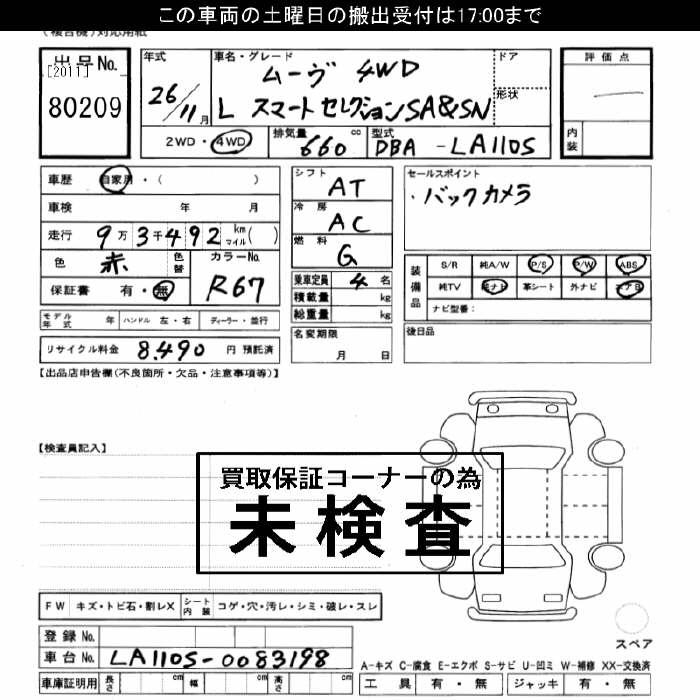 この車両の土曜日の搬出受付は17:00まで
(複合機)対応用紙
出品No.
[2011]
80209
年式
26/11月
車名・グレード
ムーヴ 4WD
L スマートセレクションSA&SN
ドア
形状
評価点
内装
2WD・4WD
排気量 660 cc
型式 DBA-LA110S
車歴 自家用・( )
車検 年 月
走行 9万3千492 km マイル( )
色 赤 色替
カラーNo.
R67
保証書 有・無
シフト AT
冷房 AC
燃料 G
乗車定員 4名
積載量 kg
総重量 kg
セールスポイント
・バックカメラ
装備品
S/R 純A/W P/S P/W ABS
純TV 純ナビ 革シート 外ナビ エアB
ナビ型番:
モデル年式 年 ハンドル 左・右 ディーラー・並行
リサイクル料金 8,490 円 預託済
名変期限
月 日
後日品
【出品店申告欄(不良箇所・欠品・注意事項等)】
【検査員記入】
買取保証コーナーの為
未検査
FW キズ・トビ石・割レX シート内装 コゲ・穴・汚レ・シミ・破レ・スレ
スペア
登録No.
車台No. LA110S-0083198
車庫証明用 長さ cm 幅 cm 高さ cm
A-キズ C-腐食 E-エクボ S-サビ U-凹ミ W-補修 XX-交換済
工具 有・無 ジャッキ 有・無